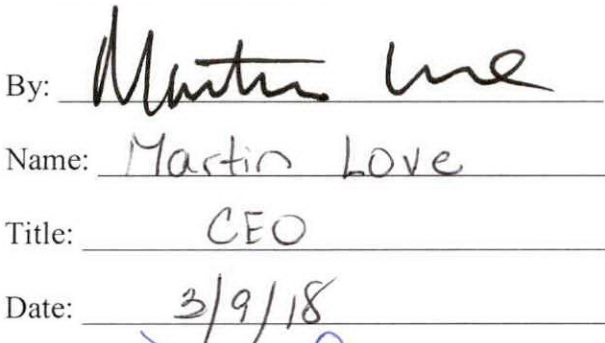 By: Martin Love
Name: Martin Love
Title: CEO
Date: 3/9/18